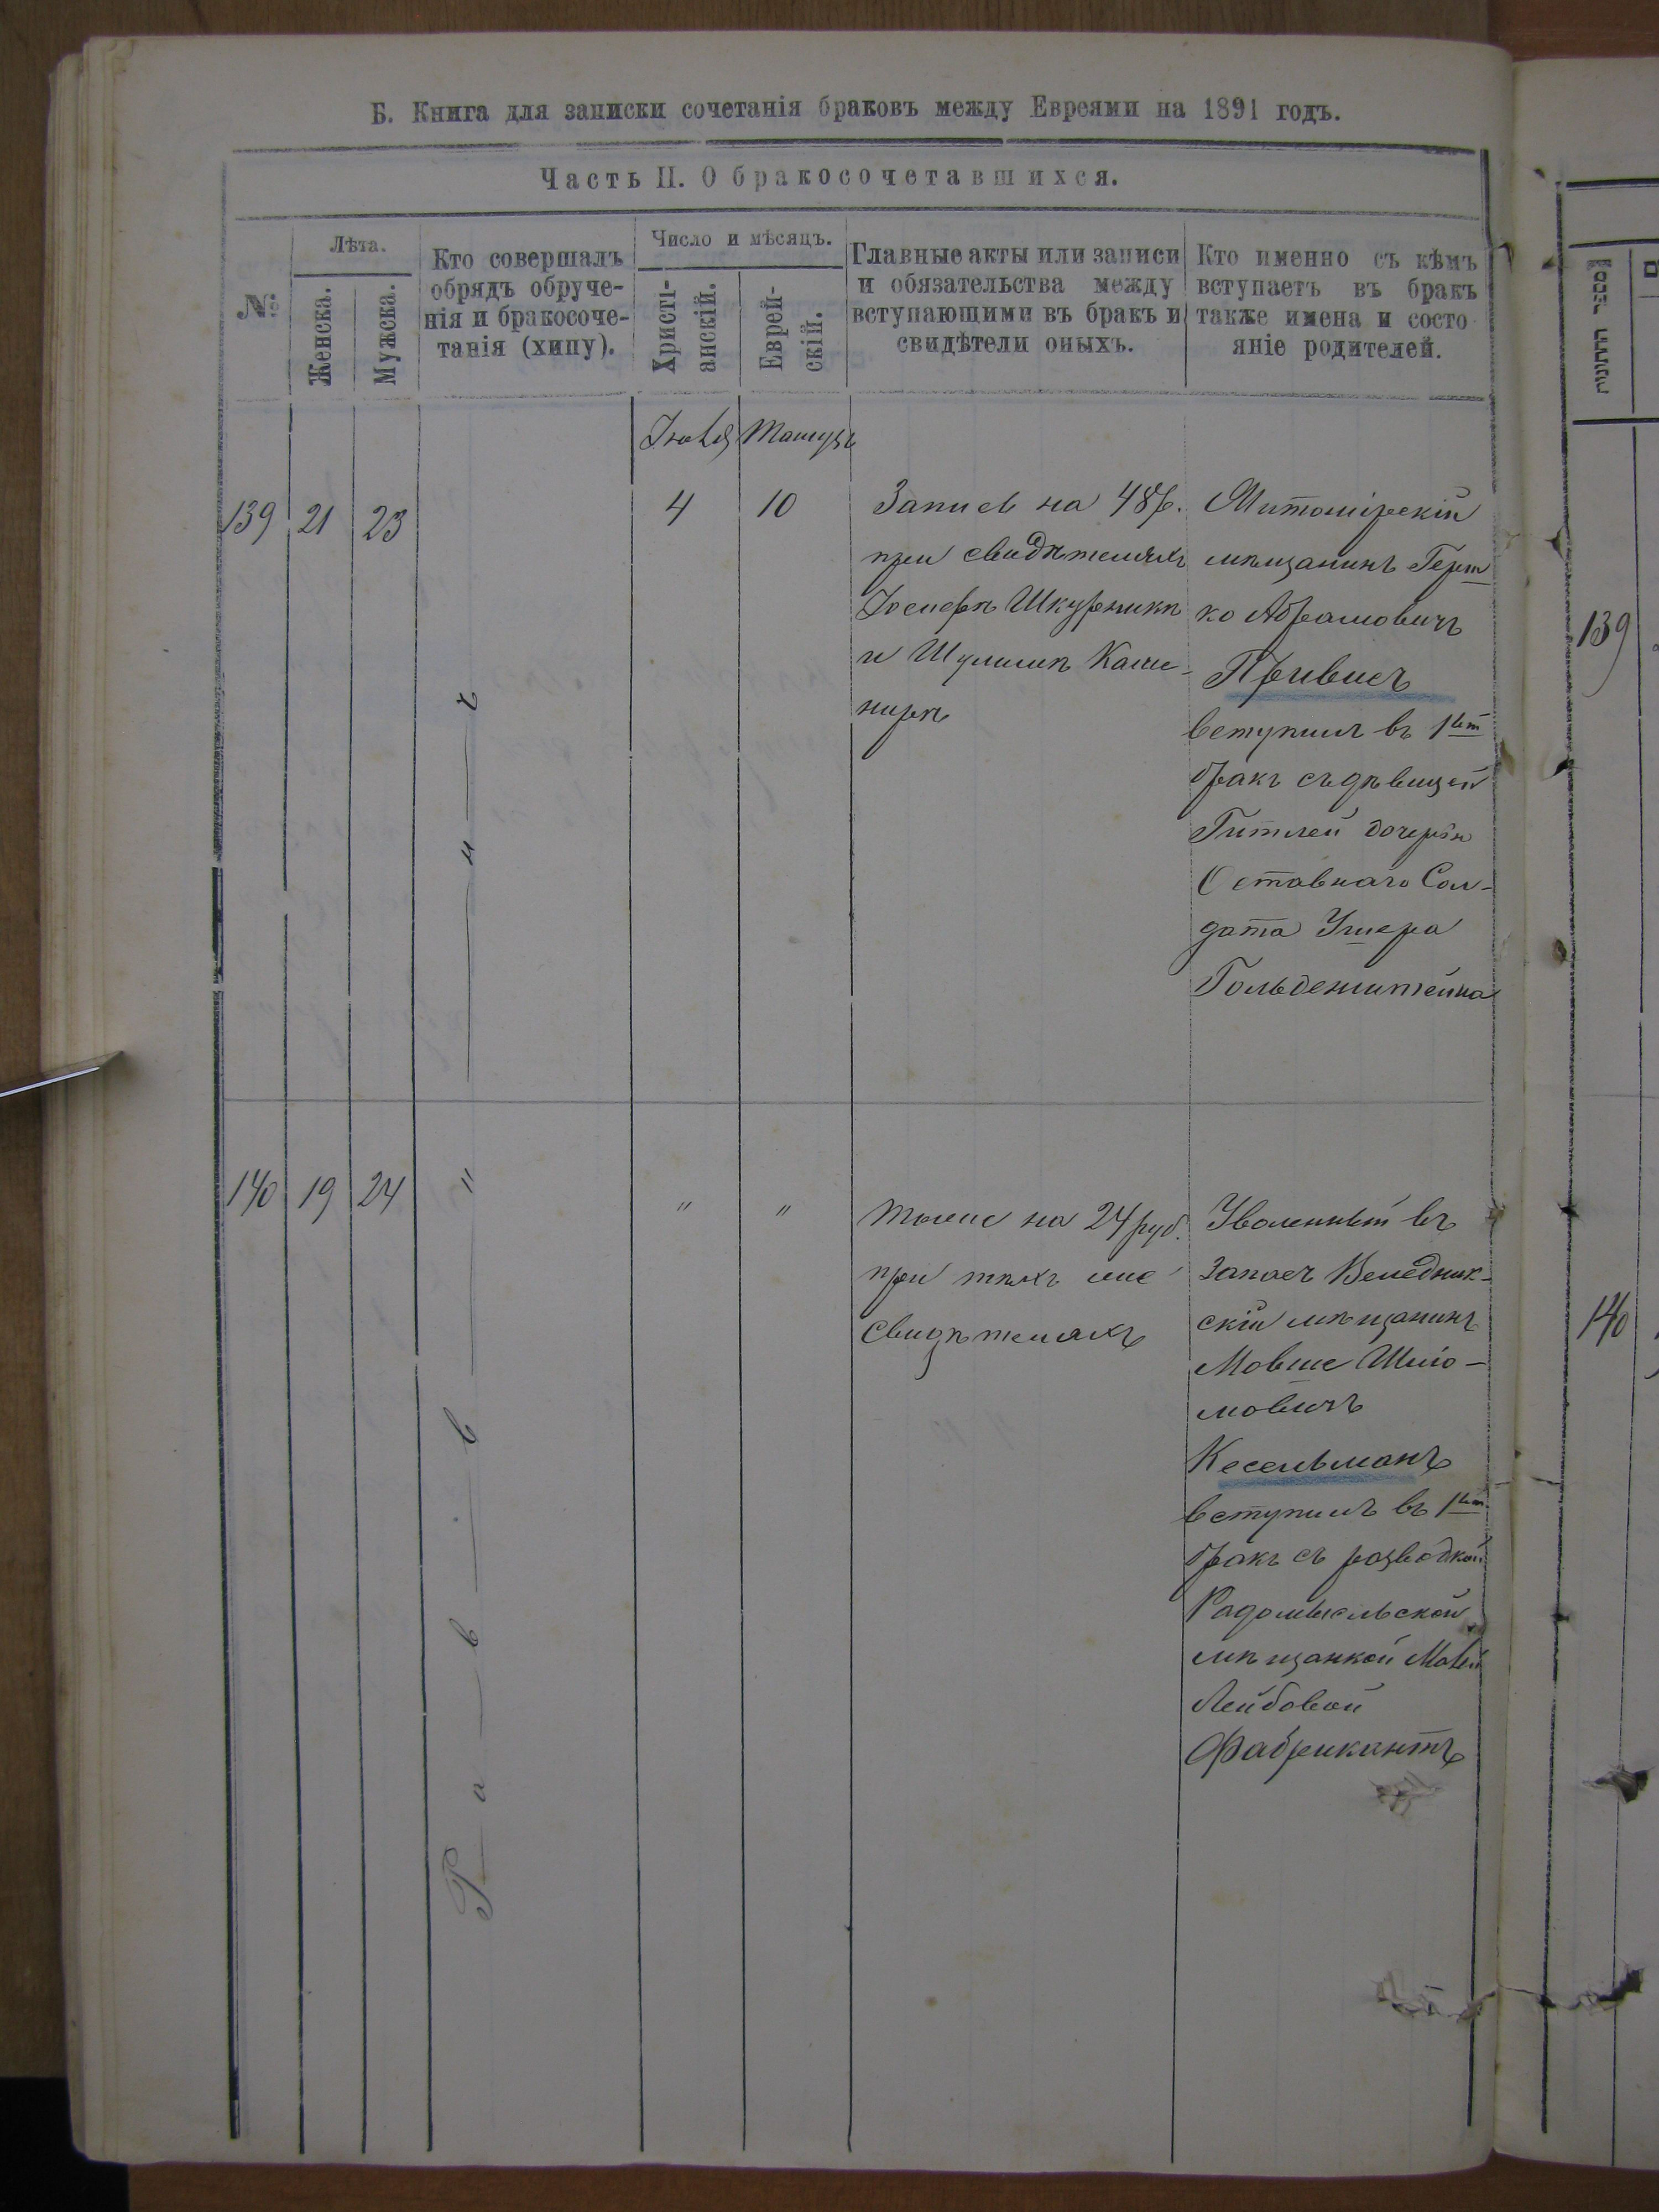 Б. Книга для записки сочетанія браковъ между Евреями на 1891 годъ.
Часть II. О бракосочетавшихся.
№
Лѣта.
Женска.
Мужска.
Кто совершалъ
обрядъ обруче-
нія и бракосоче-
танія (хипу).
Число и мѣсяцъ.
Христі-
анскій.
Еврей-
скій.
Главные акты или записи
и обязательства между
вступающими въ бракъ и
свидѣтели оныхъ.
Кто именно съ кѣмъ
вступаетъ въ бракъ
также имена и состо
яніе родителей.
מספר החתונה
Іюля
Тамузъ
139
21
23
4
10
Запись на 48 р.
при свидѣтеляхъ
Іосифѣ Шкурникѣ
и Шулимѣ
Житомірскій
мѣщанинъ Герш
ко Абрамовичъ
Привисъ
вступилъ въ 1ый
бракъ съ дѣвицей
Гитлей дочерью
Отставнаго Сол-
дата Ушера
Гольденштейна
139
140
19
24
"
"
"
Тоже на 24 руб.
при тѣхъ же
свидѣтеляхъ
Уволенный въ
запасъ Веледник-
скій мѣщанинъ
Мовше Шлio-
мовичъ
Кесельманъ
вступилъ въ 1ый
бракъ съ разводкой
Радомысльской
мѣщанкой
Лейбовой
Фабрикантъ
140
Раввинъ